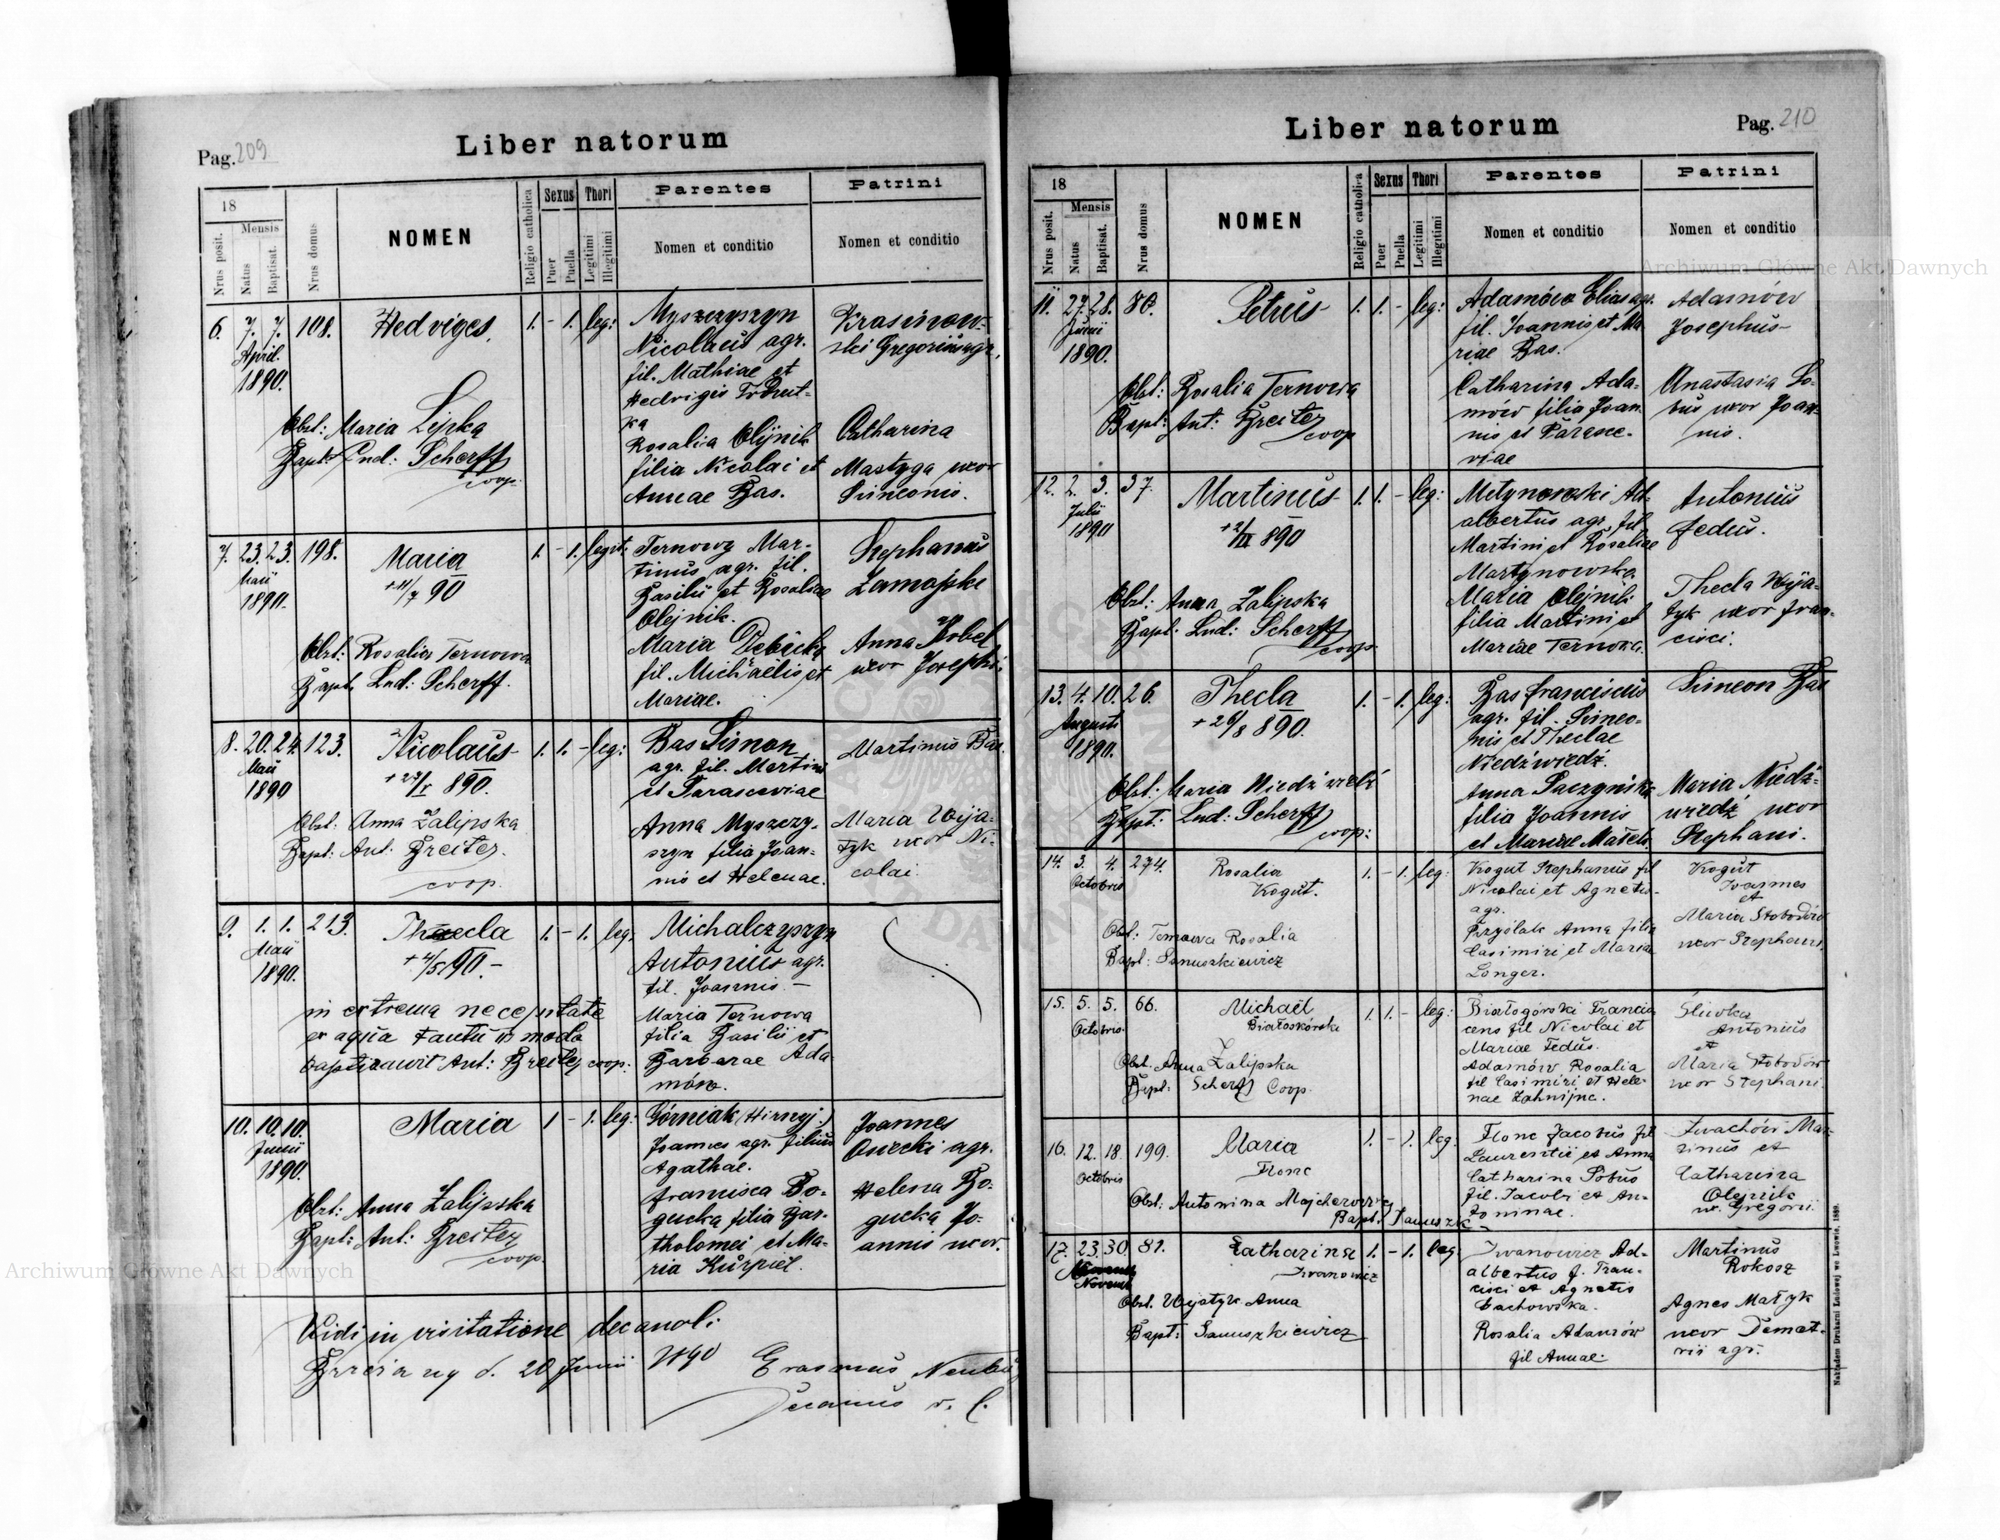 Liber natorum
Pag. 209
18
Mensis
Nrus posit.
Natus
Baptisat.
Nrus domus
NOMEN
Religio catholica
Sexus
Puer
Puella
Thori
Legitimi
Illegitimi
Parentes
Nomen et conditio
Patrini
Nomen et conditio
6. 7. 7. 108. Hedviges. 1. - 1. leg:
April.
1890.
Obst: Maria Lipka
Bapt: Lud: Scherff
coop.
Myszczyszyn
Nicolaus agr.
fil. Mathiae et
Hedvigis
Rosalia Olijnik
filia Nicolai et
Annae Bas.
Krasinow-
ski Gregorius agr.
Catharina
Mastyga uxor
Simeonis.
7. 23. 23. 198. Maria 1. - 1. legit:
Maii
1890.
+ 11/7 90
Obst: Rosalia Ternowa
Bapt. Lud: Scherff.
Ternowy Mar-
tinus agr. fil.
Basilii et Rosaliae
Olejnik.
Maria Debicka
fil. Michaëlis et
Mariae.
Stephanus
Zamojski
Anna Wrobel
uxor Josephi.
8. 20. 24. 123. Nicolaus 1. 1. - leg:
Maii
1890
890.
Obst: Anna Zalipska
Bapt: Ant. Breiter.
coop.
Bas Simon
agr. fil. Martini
et Parasceviae
Anna Myszczy-
szyn filia Joan-
nis et Helenae.
Martinus Bas.
Maria Wija-
tyk uxor Ni-
colai.
9. 1. 1. 213. Thecla 1. - 1. leg.
Maii
1890.
+ 4/5 90. -
in extrema necessitate
ex aqua tantum modo
baptizavit Ant: Breiter coop:
Michalczyszyn
Antonius agr.
fil. Joannis. -
Maria Ternowa
filia Basilii et
Barbarae Ada
mów.
10. 10. 10. Maria 1 - 1. leg:
Junii
1890.
Obst: Anna Zalipska
Bapt: Ant: Breiter
coop.
Górniak (Hirnyj)
Joannes agr. filius
Agathae.
Francisca Bo-
gucka filia Bar-
tholomei et Ma-
ria Kurpiel.
Joannes
Osiecki agr.
Helena Bo-
gucka Jo-
annis uxor.
Vidi in visitatione decanali
d. 20 Junii 1890
Erasmus
Decanus
Liber natorum
Pag. 210
18
Mensis
Nrus posit.
Natus
Baptisat.
Nrus domus
NOMEN
Religio catholica
Sexus
Puer
Puella
Thori
Legitimi
Illegitimi
Parentes
Nomen et conditio
Patrini
Nomen et conditio
11. 27. 28. 80. Petrus 1. 1. - leg:
Junii
1890.
Obst: Rosalia Ternowa
Bapt: Ant: Breiter
coop
Adamów Elias agr.
fil. Joannis et Ma
riae Bas.
Catharina Ada-
mów filia Joan-
nis et Parasce-
viae
Adamów
Josephus
Anastasia
uxor Joan-
nis.
12. 2. 3. 37. Martinus 1. 1. - leg:
Julii
1890
890
Obst: Anna Zalipska
Bapt: Lud: Scherff
coop.
Ad-
albertus agr. fil.
Martini et Rosaliae
Martynowska
Maria Olejnik
filia Martini et
Mariae Ternowa.
Antonius
Fedus.
Thecla Wija-
tyk uxor Fran-
cisci.
13. 4. 10. 26. Thecla 1. - 1. leg:
Augusti
1890.
890.
Obst: Maria Niedźwiedź
Bapt: Lud: Scherff
coop:
Bas Franciscus
agr. fil. Simeo-
nis et Theclae
Niedźwiedź.
Anna
filia Joannis
et Mariae
Simeon Bas
Maria Niedź-
wiedź uxor
Stephani.
14. 3. 4. 274. Rosalia 1. - 1. leg:
Octobris
Kogut.
Obst: Ternowa Rosalia
Bapt: Januszkiewicz
Kogut Stephanus fil
Nicolai et Agnetis.
agr.
Anna filia
Casimiri et Maria
Longer.
Kogut
Joannes
et
Maria Słobodów
uxor Stephani.
15. 5. 5. 66. Michaël 1. 1. - leg:
Octobris.
Białoskórski
Obst. Anna Zalipska
Bapt: Scherff Coop.
Białogórski Francis
cens fil Nicolai et
Mariae Fedus.
Adamów Rosalia
fil Casimiri et Hele-
nae
Śliwka
Antonius
et
Maria Słobodów
uxor Stephani.
16. 12. 18. 199. Maria 1. - 1. leg.
Octobris
Flonc
Obst: Antonina
Bapt:
Flonc Jacobus fil
Laurentii et Anna
Catharina
fil. Jacobi et An-
toninae.
Iwachów Mar
tinus et
Catharina
Olejnik
ux. Gregorii.
17. 23. 30. 81. Catharina 1. - 1. leg.
Novemb
Iwanowicz
Obst. Wijatyk Anna
Bapt: Januszkiewicz
Iwanowicz Ad-
albertus f. Fran-
cisci et Agnetis
Rosalia Adamów
fil Annae.
Martinus
Rokosz
Agnes Małyk
uxor Demet-
rii agr.
Nakładem Drukarni Ludowej we Lwowie. 1889.
Archiwum Główne Akt Dawnych
Archiwum Główne Akt Dawnych